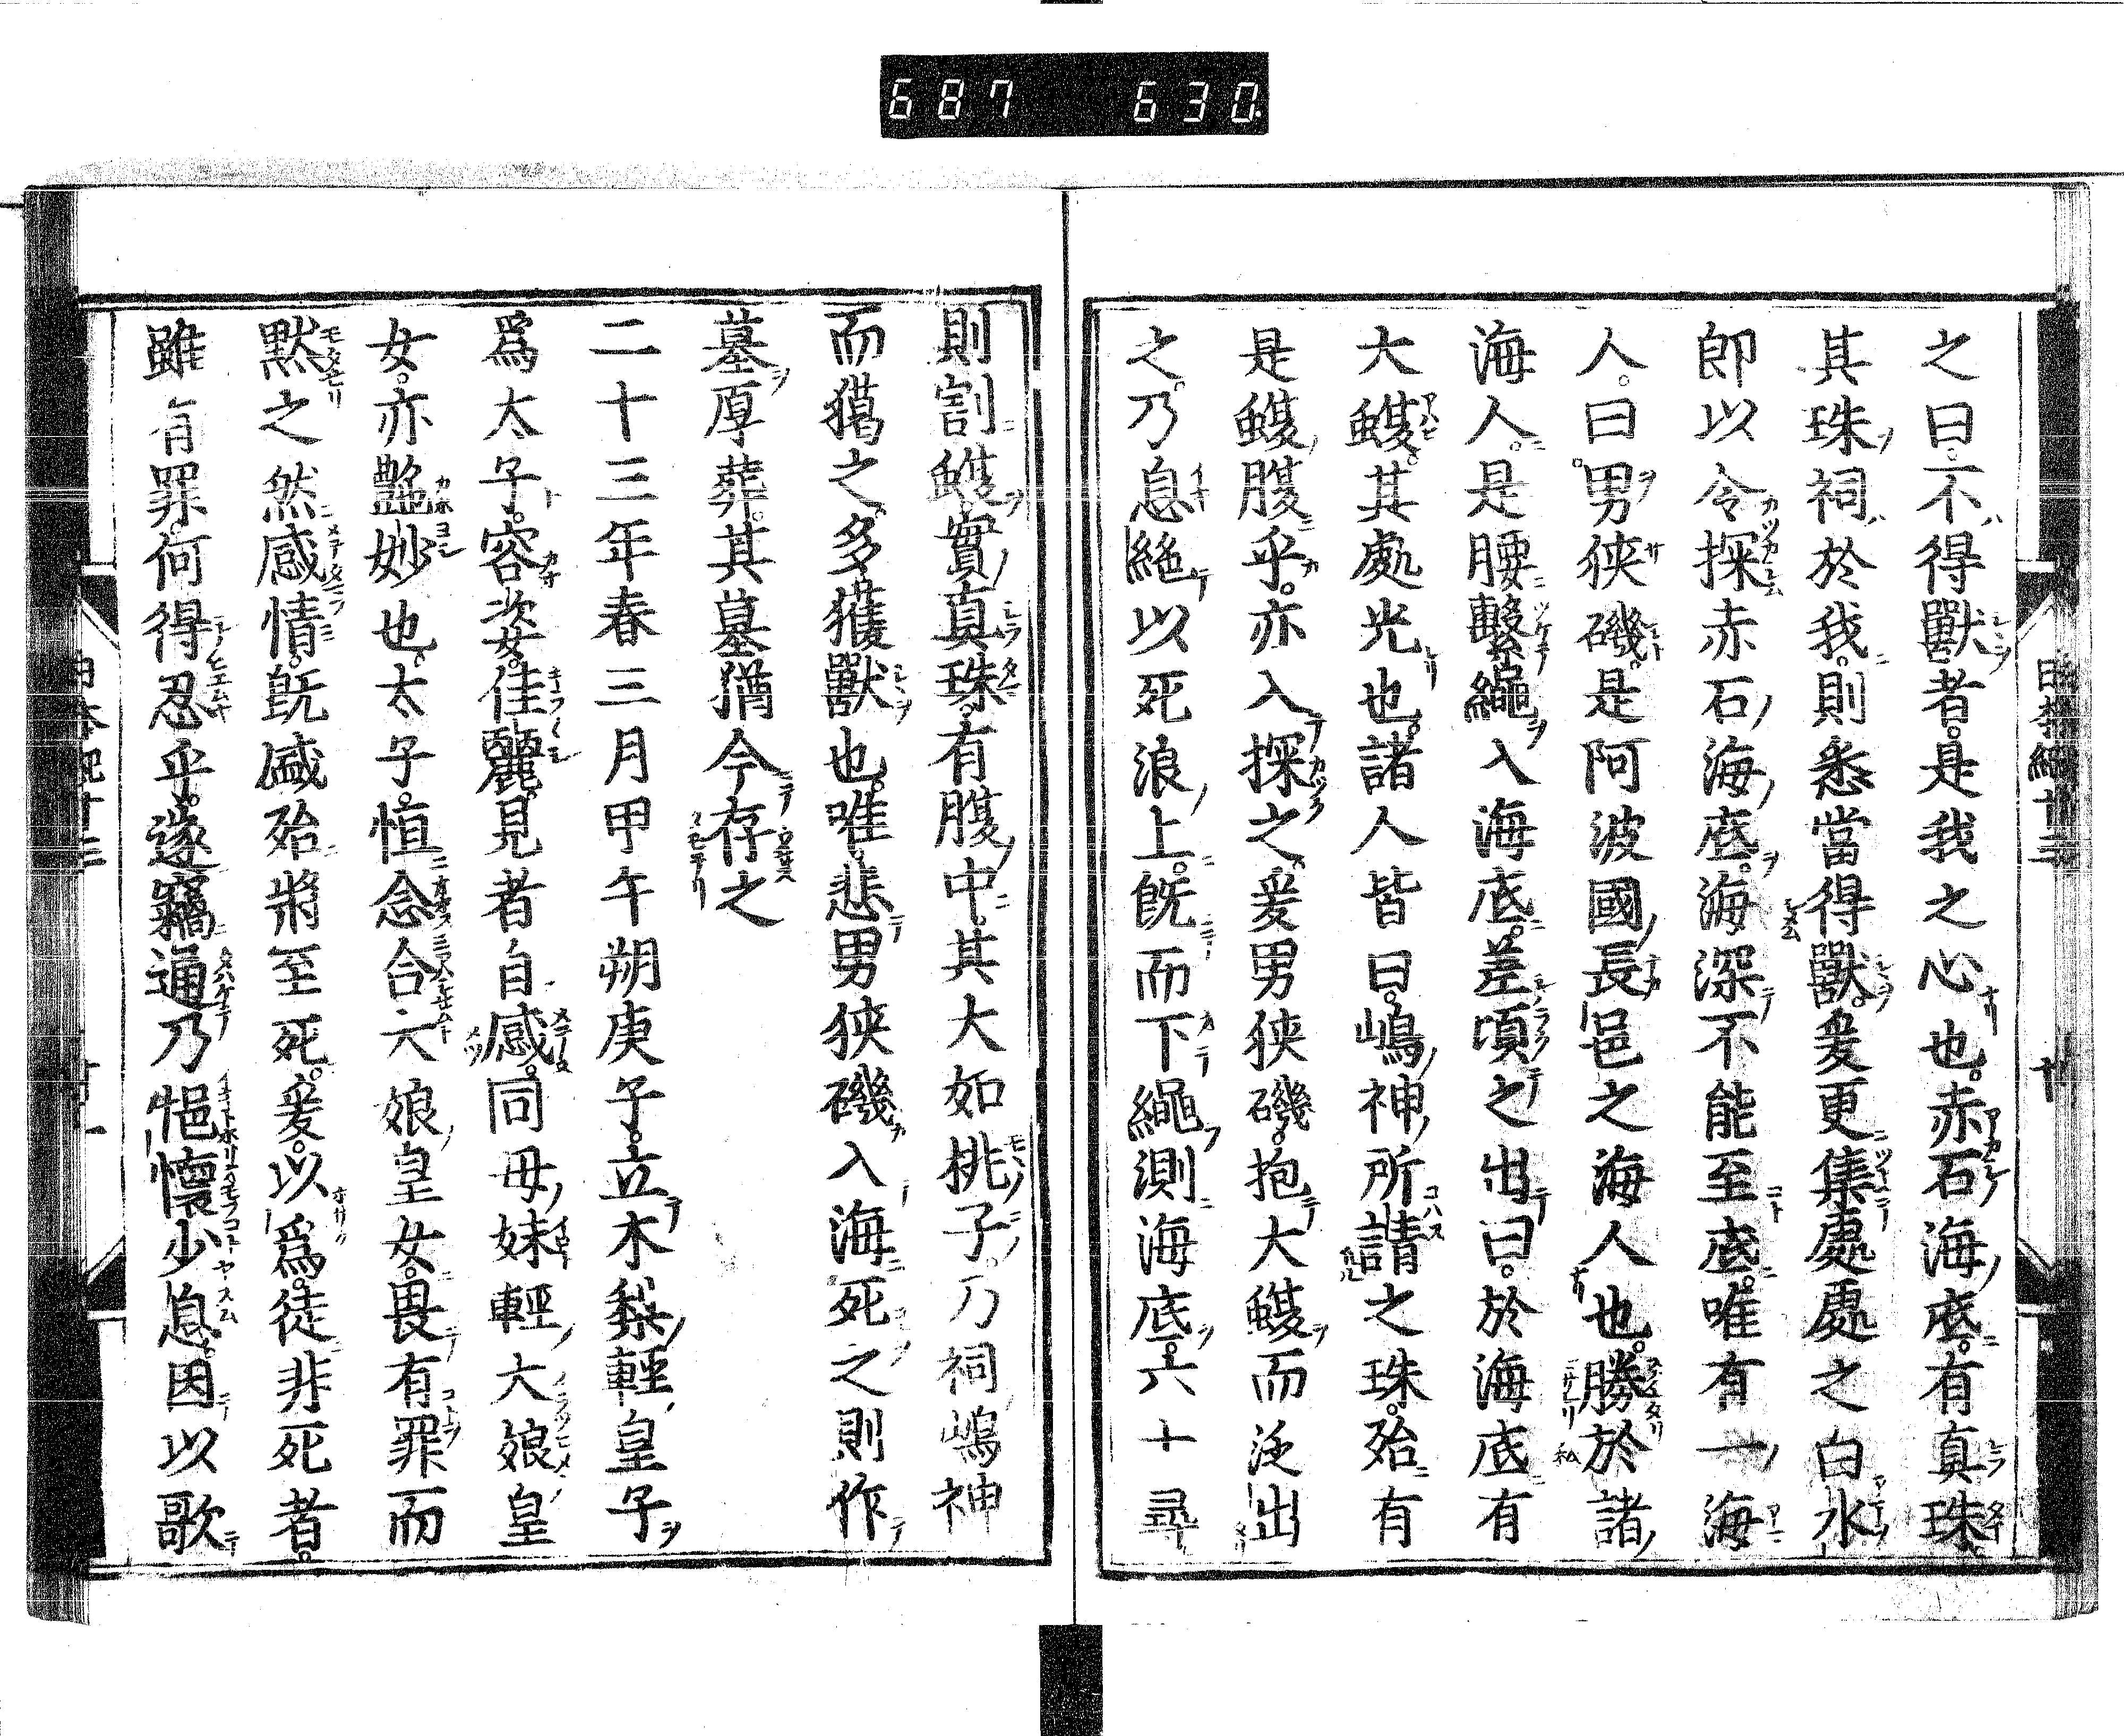 687 630
之曰不得獸者是我之心也赤石海底有真珠
其珠祠於我則悉當得獸爰更集處處之白水
郎以令探赤石海底海深不能至底唯有一海
人曰男狹磯是阿波國長邑之海人也勝於諸
海人是腰繫繩入海底差頃之出曰於海底有
大鰒其處光也諸人皆曰嶋神所請之珠殆有
是鰒腹乎亦入探之爰男狹磯抱大鰒而泛出
之乃息絶以死浪上既而下繩測海底六十尋
則割鰒實真珠有腹中其大如桃子乃祠嶋神
而獦之多獲獸也唯悲男狹磯入海死之則作
墓厚葬其墓猶今存之
二十三年春三月甲午朔庚子立木梨輕皇子
爲太子容姿佳麗見者自感同母妹輕大娘皇
女亦艶妙也太子恒念合大娘皇女畏有罪而
黙之然感情既盛殆將至死爰以爲徒非死者
雖有罪何得忍乎遂竊通乃悒懷少息因以歌